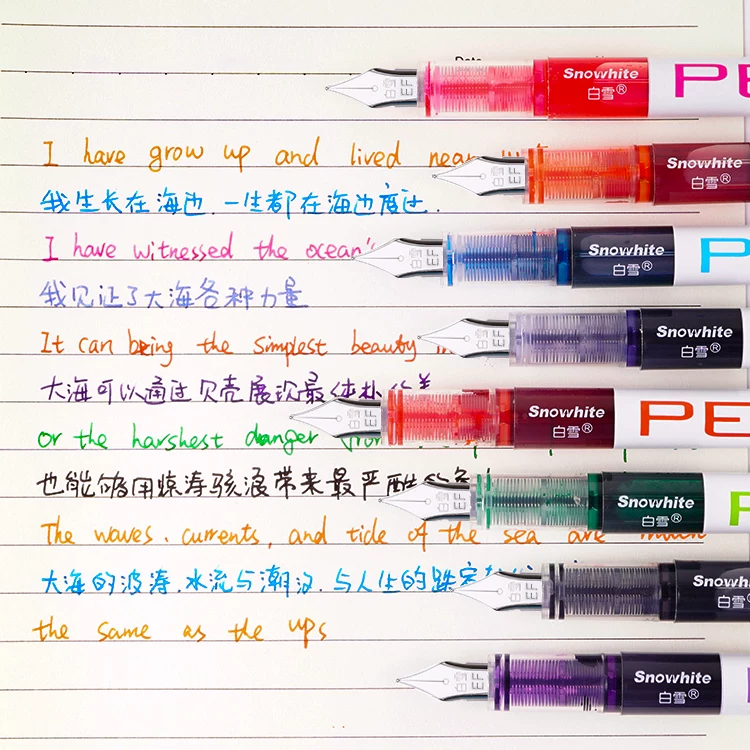 Snowhite PE
白雪®
EF
I have grow up and lived near
Snowhite
白雪®
EF
我生长在海边.一生都在海边度过.
I have witnessed the ocean's
Snowhite P
白雪®
EF
我见证了大海各种力量
Snowhite
白雪®
EF
It can being the simplest beauty
大海可以通过贝壳展现最体朴
Snowhite PE
白雪®
EF
or the harshest danger from
也能够用惊涛骇浪带来最严酷的
Snowhite
白雪®
EF
The waves. currents, and tide of the sea are much
大海的波涛.水流与潮汐.与人生的跌宕
Snowhite
白雪®
EF
the same as the ups
Snowhite
白雪®
EF